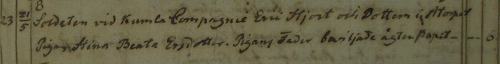 8
23 21/5 Soldaten vid Kumla Compagnie Eric Hjort och Dottern i Torpet
Pigan Stina Beata Ersdotter. Pigans Fader beviljade ägten